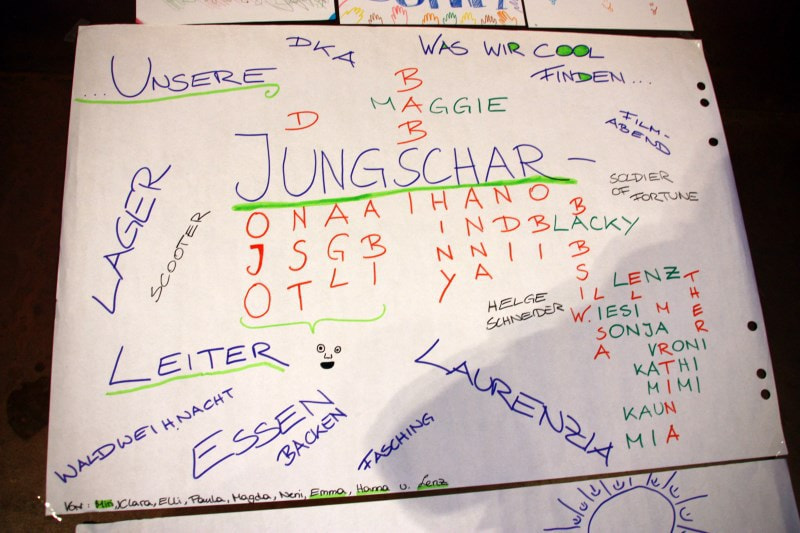 ...UNSERE
DKA
WAS WIR COOL
FINDEN...
BABB
MAGGIE
FILM-
ABEND
D
JUNGSCHAR-
SOLDIER
OF FORTUNE
LAGER
SCOOTER
O N A A I H A N O
J S G B I N D BLACKY
O T L I N N I I
Y A
HELGE
SCHNEIDER
LENZ
THER
W.IESI
SONJA
VRONI
KATHI
MIMI
KAUNA
MIA
LEITER
LAURENZIA
WALDWEIHNACHT
ESSEN
BACKEN
FASCHING
VON: Mia, Clara, Elli, Paula, Magda, Neni, Emma, Hanna u. Lenz